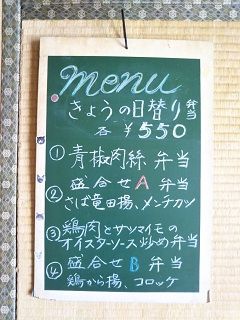 menu
きょうの日替り弁当
各 ¥550
① 青椒肉絲 弁当
② 盛合せ A 弁当
さば竜田揚、メンチカツ
③ 鶏肉とサツマイモの
オイスターソース炒め弁当
④ 盛合せ B 弁当
鶏から揚、コロッケ